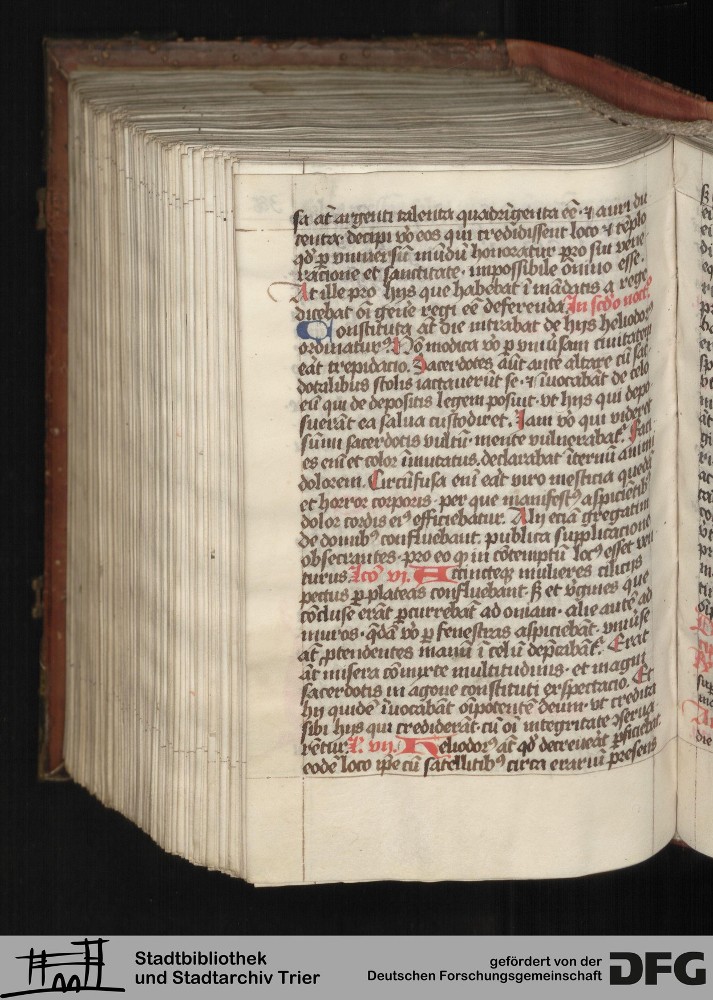 sa at̄ argenti talenta quadrīgenta eē · ⁊ auri du
centa · decipi v̊o eos qui credidissent loco ⁊ tēplo
qd̄ ꝑ vniuersū mūdū honoratur pro sui vene
ratione et sanctitate · impossibile om̄ino esse ·
At ille pro hijs que habebat ī mādatis a rege
dicebat oī gen̄e regi eē deferenda In scd̄o noct᷒
Constituta at̄ die intrabat de hijs heliodor᷒
ordinatur᷒ Nō modica v̊o ꝑ vniūsam ciuitatem
eāt trepidacio. Sacerdotes aūt ante altare cū sac̄
dotalibus stolis iactauerūt se · ⁊ īuocabāt de celo
eū qui de depositis legem posuit · vt hijs qui depo
suerāt ea salua custodiret. Iam v̊o qui videret
sūmi sacerdotis vultū · mente vulnerabat᷒. Faci
es eni et color īmutatus. declarabat īternū animi
dolorem. Circūfusa eni eāt viro mesticia quedā
et horror corporis · per que manifest᷒ aspiciētib᷒
dolor cordis ei᷒ efficiebatur. Alij eciā gregatim
de domib᷒ confluebant. publica supplicacione
obsecrantes · pro eo ꝙ in cōtemptū loc᷒ esset ven
turus. Lc̄o vi. Accincteq̄ mulieres cilicijs
pectus ꝑ plateas confluebant · s̄ et v̄gines que
cōcluse erāt ꝑcurrebāt ad oniam · alie autē ad
muros · q̄dā v̊o ꝑ fenestras aspiciebāt · vniūse
at̄ ꝓtendentes manū ī celū dep̄cabāt᷒. Erat
āt misera cōmixte multitudinis · et magni
sacerdotis in agone constituti exspectacio. Et
hij quidē īuocabāt oīpotentē deum · vt credita
sibi hijs qui crediderāt · cū oī integritate ↄserua
rētur. L. vij. Heliodor᷒ at̄ qd̄ decreueāt ꝑficiebat
eodē loco ip̄e cū satellitib᷒ circa erariū presens
Stadtbibliothek
und Stadtarchiv Trier
gefördert von der
Deutschen Forschungsgemeinschaft
DFG